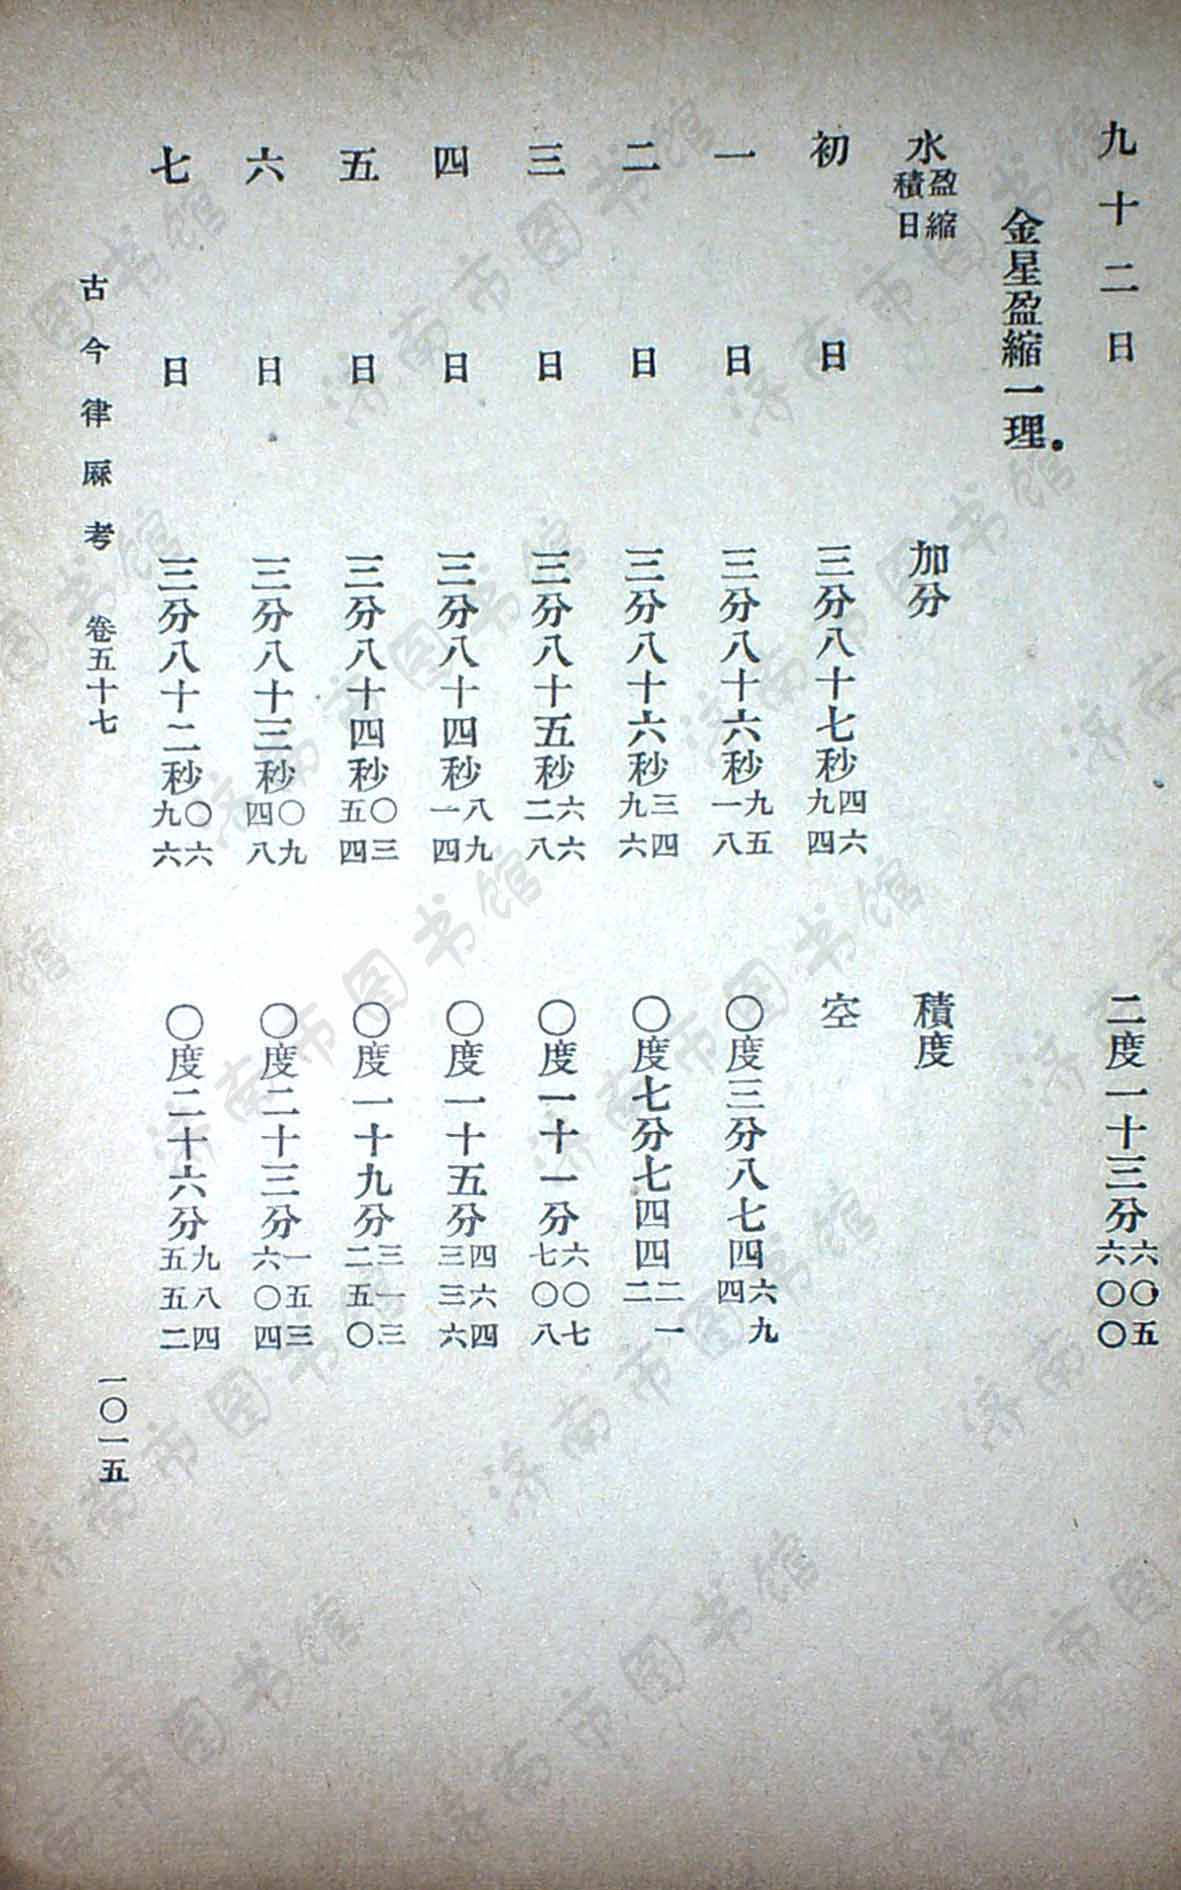 九十二日 二度一十三分六〇五六〇〇
金星盈縮一理。
水盈縮積日 加分 積度
初日 三分八十七秒四六九四 空
一日 三分八十六秒九五一八 〇度三分八七四六九四
二日 三分八十六秒三四九六 〇度七分七四四二一二
三日 三分八十五秒六六二八 〇度一十一分六〇七七〇八
四日 三分八十四秒八九一四 〇度一十五分四六四三三六
五日 三分八十四秒〇三五四 〇度一十九分三一三二五〇
六日 三分八十三秒〇九四八 〇度二十三分一五三六〇四
七日 三分八十二秒〇六九六 〇度二十六分九八四五五二
古今律厤考 卷五十七 一〇一五
济南市图书馆